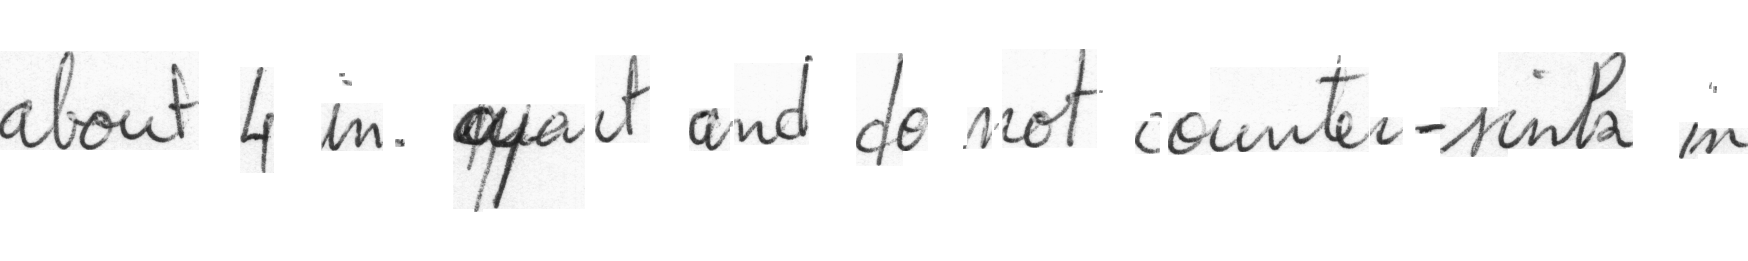 about 4 in. apart and do not counter-sink in